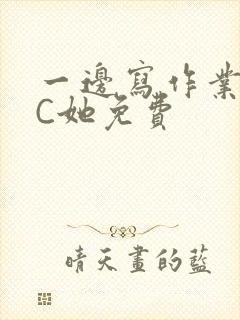 一邊寫作業
C她免費
晴天畫的藍